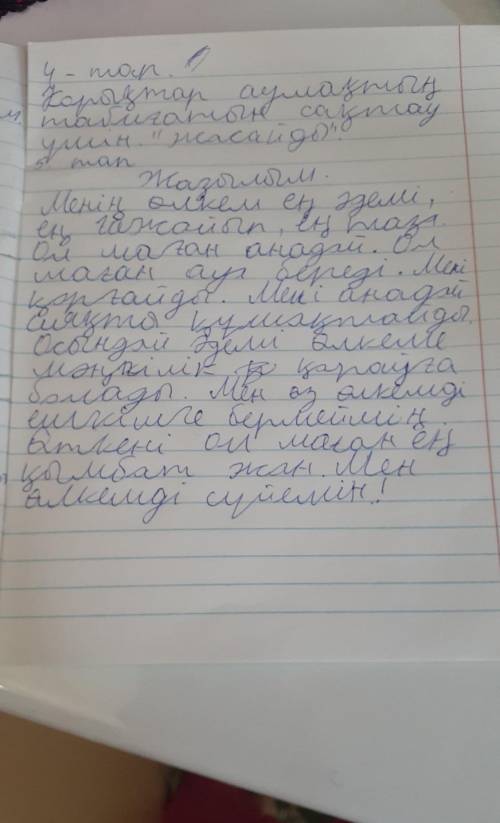 4 - тап.
Қорықтар аумақтың
табиғатын сақтау
үшін. "жасайды".
5 тап
Жазылым.
Менің өлкем ең әдемі,
ең ғажайып, ең таза.
Ол маған анадай. Ол
маған ауа береді. Мені
қорғайды. Мені анадай
сияқты құшақтайды.
Осындай әдемі өлкеме
мәңгілік қарауға
болады. Мен өз өлкемді
ешкімге бермеймін
өткені ол маған ең
қымбат жан. Мен
өлкемді сүйемін!